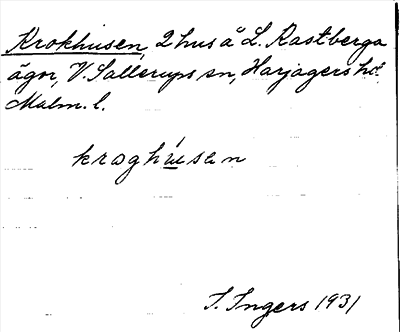 Krokhusen, 2 hus å L. Rastberga
ägor, V. Sallerups sn, Harjagers hd.
Malm. l.
kroghúsen
I. Ingers 1931